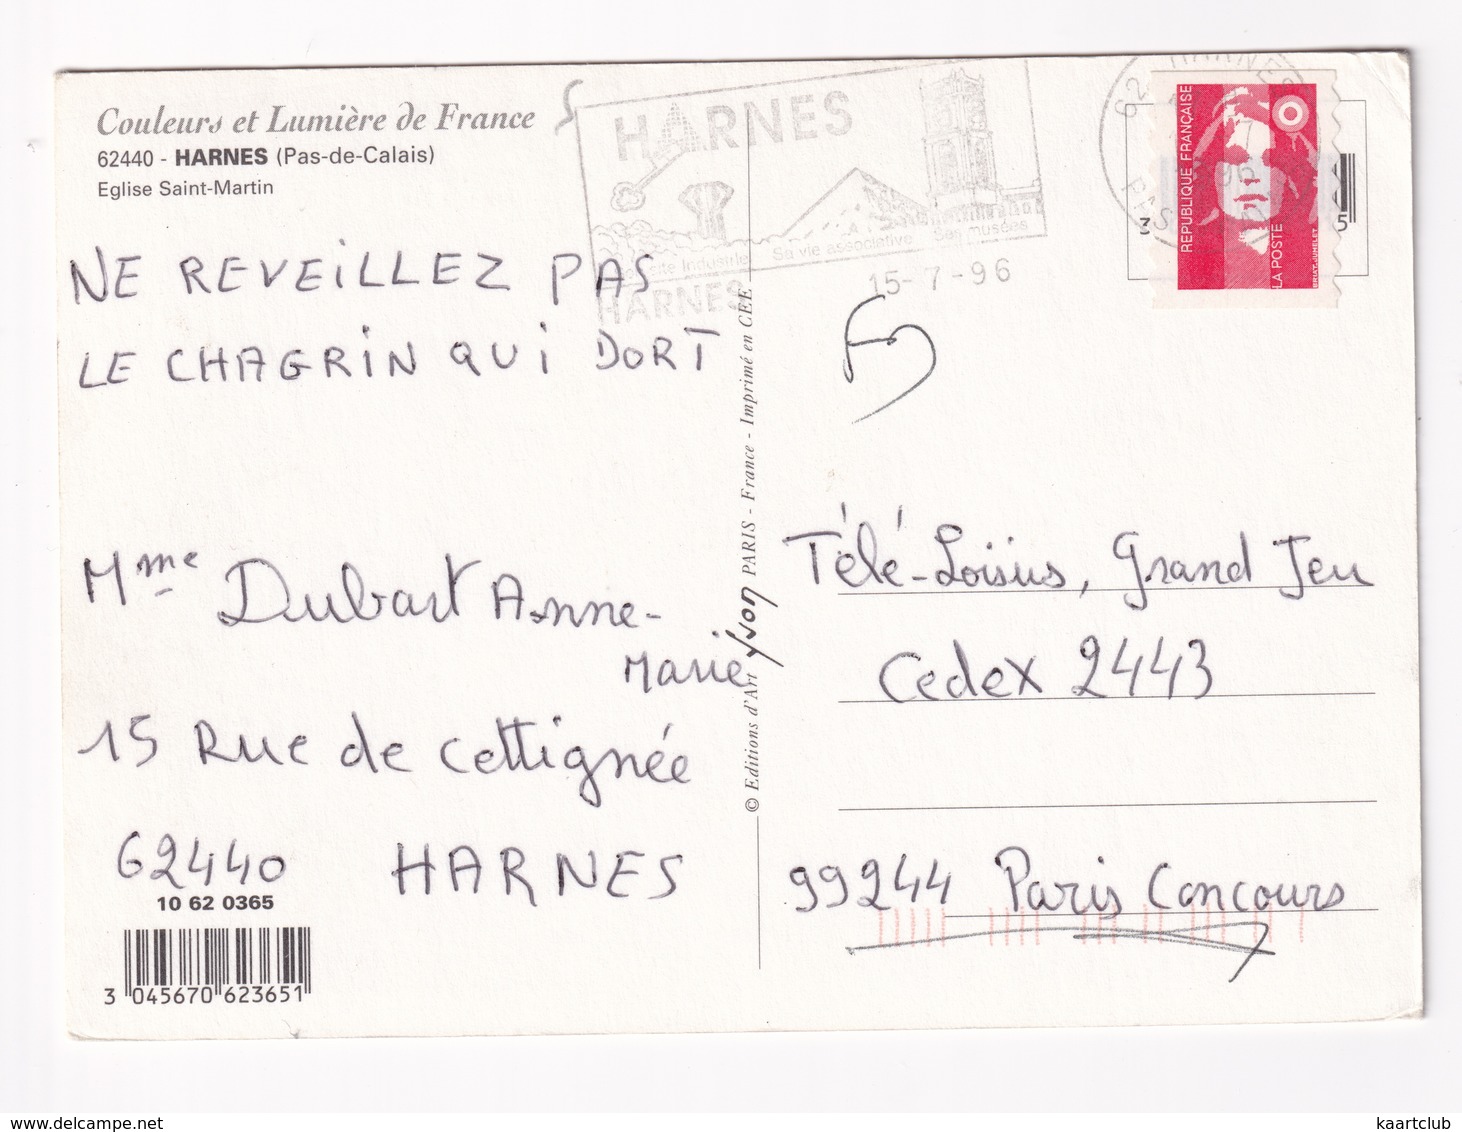 Couleurs et Lumière de France
62440 - HARNES (Pas-de-Calais)
Eglise Saint-Martin
NE REVEILLEZ PAS
LE CHAGRIN QUI DORT
Mme Dubart Anne-
Marie
15 Rue de Cottignée
62440 HARNES
10 62 0365
3 045670 623651
© Editions d'Art Yvon PARIS - France - Imprimé en CEE
HARNES
site Industriel Sa vie associative Ses musées
HARNES
15-7-96
62 HARNES
96
REPUBLIQUE FRANÇAISE
LA POSTE
BRIAT-JUMELET
3 5
Télé-Loisirs, Grand Jeu
Cedex 2443
99244 Paris Concours
kaartclub